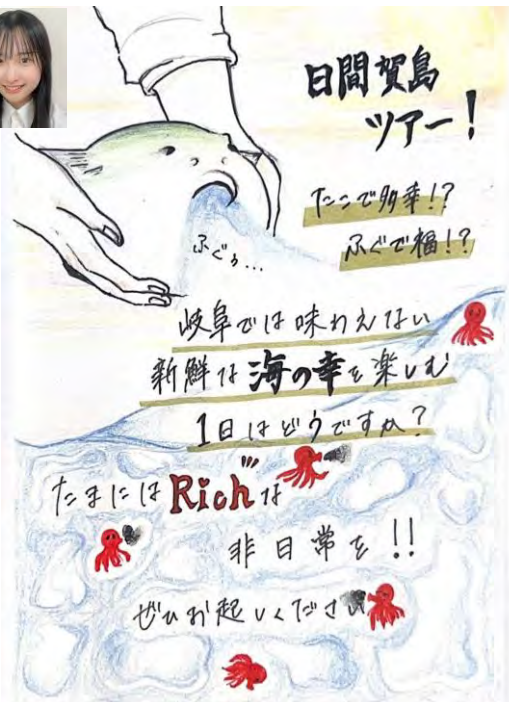 日間賀島
ツアー!
たこで多幸!?
ふぐで福!?
ふぐぅ...
岐阜では味わえない
新鮮な海の幸を楽しむ
1日はどうですか?
たまにはRichな
非日常を!!
ぜひお起しください